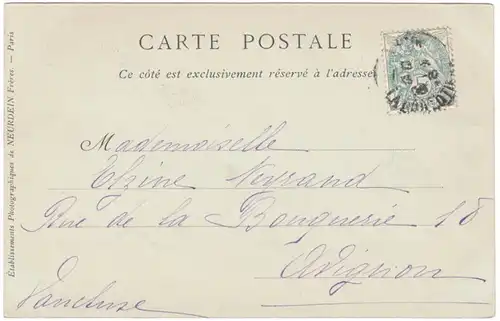 CARTE POSTALE
Ce côté est exclusivement réservé à l'adresse
Mademoiselle
Elzine Neyrand
Rue de la Bonguerie 18
Avignon
Vaucluse
Établissements Photographiques de NEURDEIN Frères. — Paris